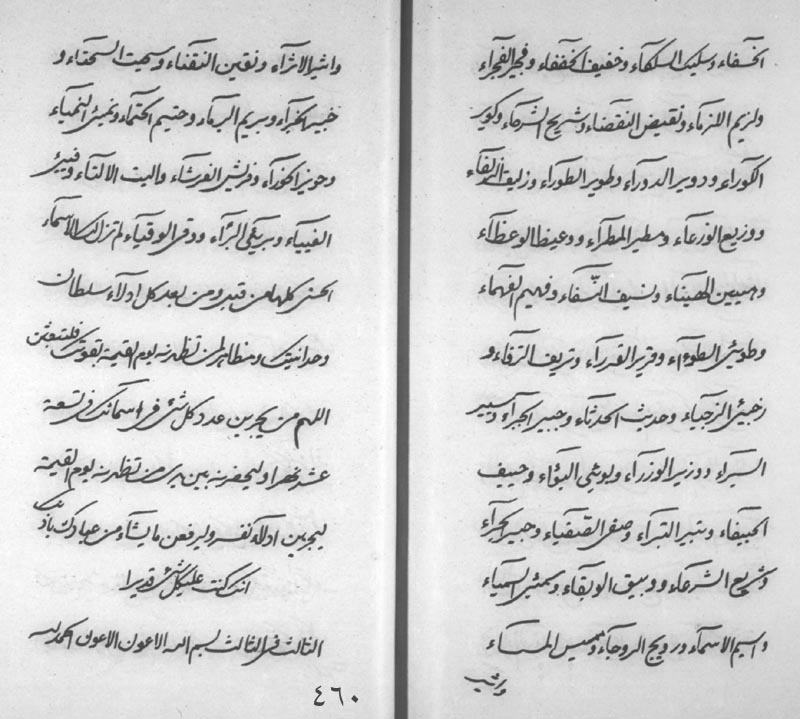 الخسفاء وسليك السلكاء وخفيف الخففاء وفجير الفجراء
ولزيم اللزماء ونقيض النقضاء وشريح الشرحاء وكوير
الكوراء ودوير الدوراء وطوير الطوراء وزليف الزلفاء
ووزيع الوزعاء ومطير المطراء ووعيظ الوعظاء
وهيين الهيناء ونسيف النسفاء وفهيم الفهماء
وطويئ الطوءاء وقرير القرراء وتريف الترفاء و
زجيئ الزجياء وحديث الحدثاء وجبير الجبراء وسيير
السيراء ووزير الوزراء وبوئي البؤاء وحييف
الحييفاء وتبير التبراء وصفي الصفياء وحبير الحبراء
وشريع الشرعاء ووبيق الوبقاء وسمئي السمياء
واسيم الاسماء ورويج الروجاء ومسيس المسساء
واثير الاثراء ونقين النقناء وسميت السمتاء و
خبير الخبراء وبريم البرماء وحتيم الحتماء ونمئي النمياء
وحوير الحوراء وفريش الفرشاء واليت الالتاء وفيئ
الفيياء وبريئ البرآء ووقي الوقياء لم تزل لك الاسماء
الحسنى كلها من قبل ومن بعد كل ادلاء سلطان
وحدانيتك ومظاهر لمن تظهرنه يوم القيمة بقولك فلتبعثن
اللهم من يحرين عدد كل شئ في اسمائك في تسعة
عشر نهرا وليحضرنه بين يدي من تظهرنه يوم القيمة
ليجرين ادلاء نفسه وليرفعن ما يشاء من عبادك بذلك
انك كنت على كل شئ قديرا
الثالث في الثالث بسم الله الاعون الاعون الحمد لله
٤٦٠